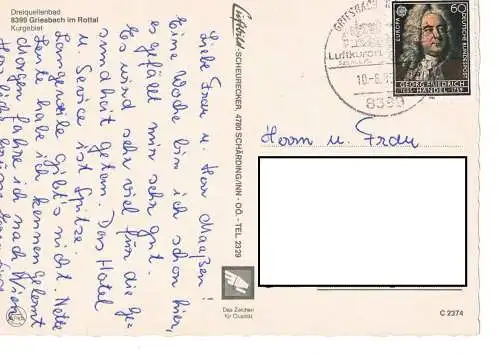 Dreiquellenbad
8399 Griesbach im Rottal
Kurgebiet
Liebe Frau u. Herr Maaßen!
Eine Woche bin ich schon hier,
es gefällt mir sehr gut.
Es wird sehr viel für die Ge-
sundheit getan. Das Hotel
u. Service ist Spitze.
Langeweile gibt's nicht. Nette
Leute habe ich kennen gelernt
Morgen fahre ich nach Wien
Herzliche Grüße
Luftbild-SCHEURECKER, 4780 SCHÄRDING/INN - OÖ. - TEL. 2329
Das Zeichen
für Qualität
GRIESBACH
Luftkurort
10.-6.
8399
EUROPA
60
DEUTSCHE BUNDESPOST
GEORG FRIEDRICH
1685 HÄNDEL 1759
Herrn u. Frau
C 2374